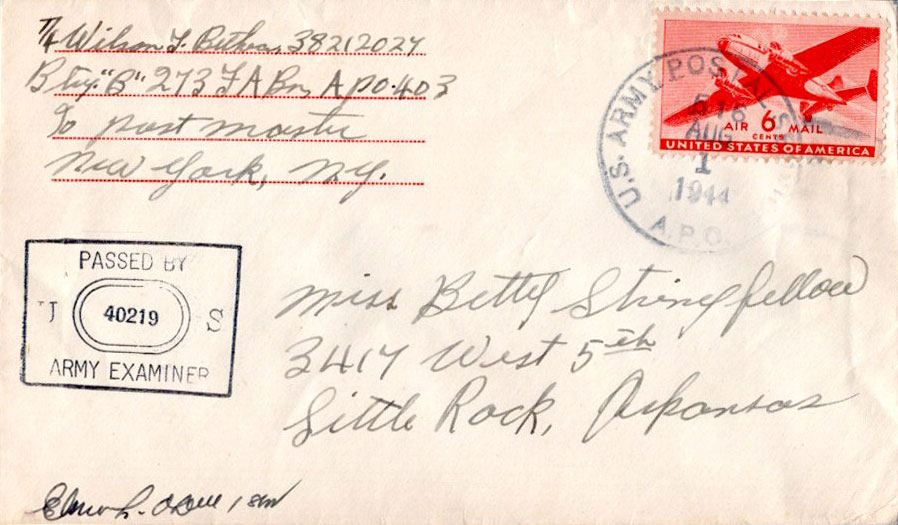 T/4 Wilson F. 38212027
Btry. "B" 273 F A Bn APO. 403
% Post Master
New York, N.Y.
U.S. ARMY POSTAL
AUG
1
1944
A.P.O.
AIR 6 MAIL
CENTS
UNITED STATES OF AMERICA
PASSED BY
U 40219 S
ARMY EXAMINER
Miss Betty Stringfellow
3417 West 5th
Little Rock, Arkansas